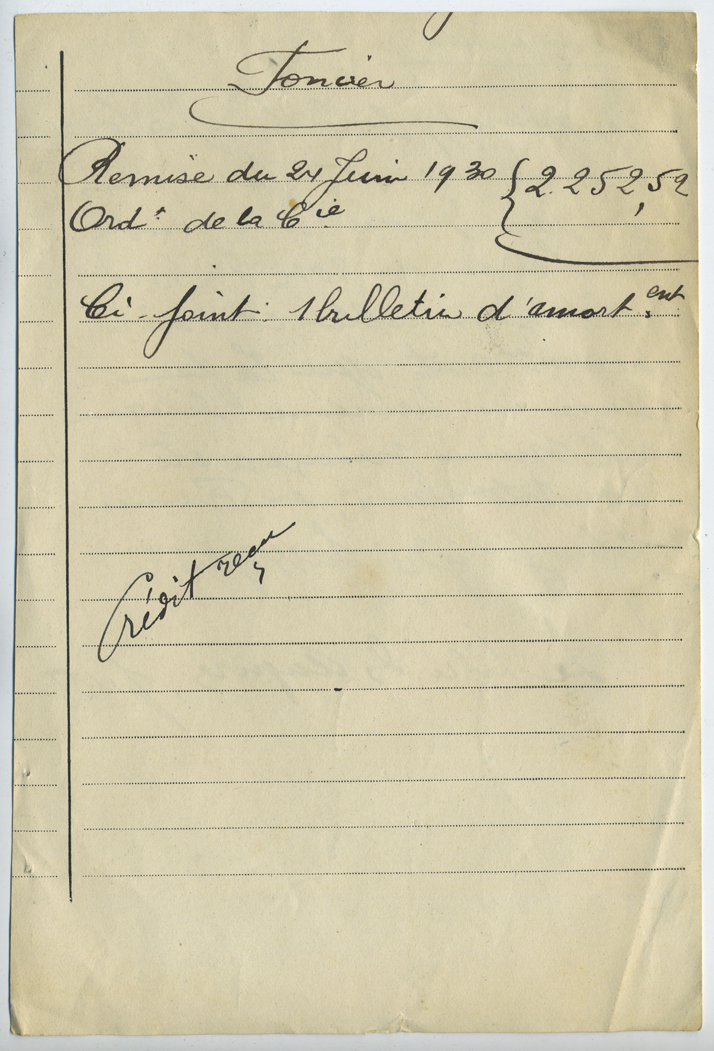 Foncier
Remise du 24 Juin 1930 { 2.252,52
Ord.t de la Cie
Ci-joint : 1 bulletin d'amort.ent
Crédit reçu